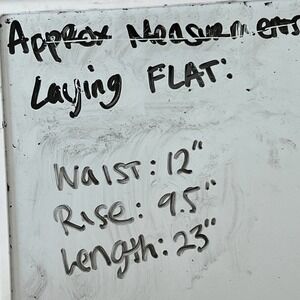 Approx Measurements
Laying FLAT:
Waist: 12"
Rise: 9.5"
Length: 23"